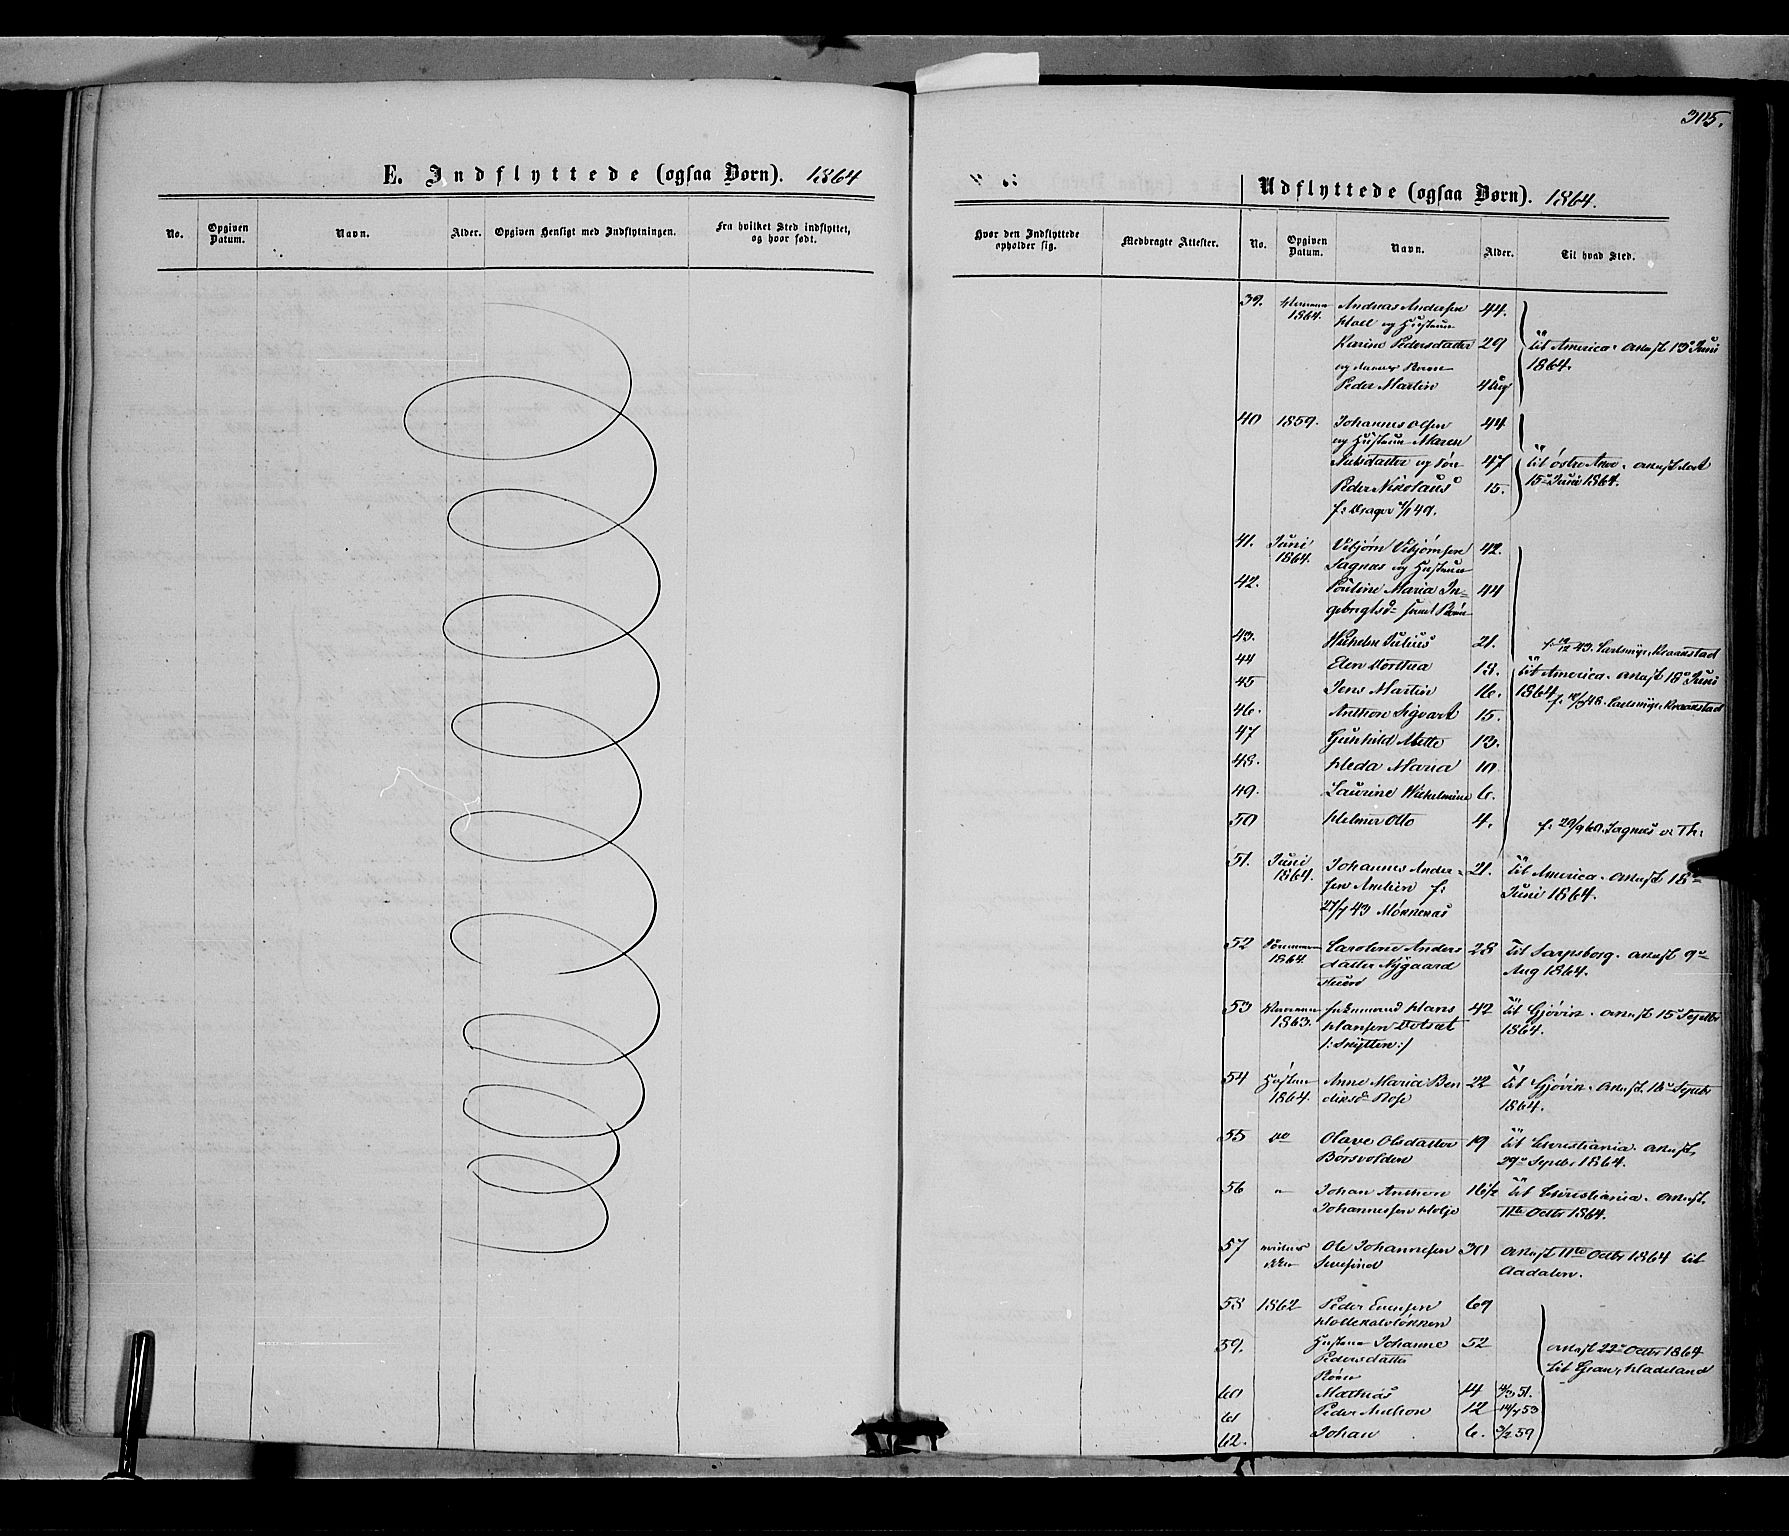 305.
E. Indflyttede (ogsaa Børn). 1864
No.
Opgiven Datum.
Navn.
Alder.
Opgiven Hensigt med Indflytningen.
Fra hvilket Sted indflyttet, og hvor født.
Udflyttede (ogsaa Børn). 1864.
Hvor den Indflyttede opholder sig.
Medbragte Attester.
No.
Opgiven Datum.
Navn.
Alder.
Til hvad Sted.
39. 1864. Andreas Andersen 44.
og Hustrue
Karine Pedersdatter 29 til America. anmeldt 13de Juni
og deres Barn 1864.
Peder Martin 4 Aar
40 1859. Johannes Olsen 44
og Hustrue Maren
Nilsdatter og Søn 47 til østre
Peder Nikolaus 15. 15de Juni 1864.
f: Prager 49.
41. Juni 1864. Vebjørn Vebjørnsen 42.
Sagnæs og Hustrue
42. Pauline Maria In= 44
gebrigtsd= samt Børn
43. Wilhelm Julius 21. f. 43.
44 Elen Dorthea 18. til America. anmeldt 18de Juni
45 Jens Martin 16. 1864
46. Anthon Sigvart 15.
47 Gunhild Mette 13.
48. Heda Maria 10
49. Laurine Wilhelmine 6.
50 Helmer Otto 4. f: 29/9 60. Sagnæs v. Th:
51. Juni 1864. Johannes Ander= 21. til America. anmeldt 18de
sen f: Juni 1864.
43
52 1864. Caroline Anders 28 til Sarpsborg. anmeldt 9de
datter Nygaard Aug 1864.
53 1863. Hans 42 til Gjøvik. anmeldt 15de Septbr
Hansen 1864.
54 Høsten 1864. Anne Maria Ben 22 til Gjøvik. anmeldt Septbr
1864.
55 do Olave Olsdatter 19 til Christiania. anmeldt
Børsvolden 29de Septbr 1864.
56 " Johan Anthon 16 1/2 til Christiania. anmeldt
Johannessen 11te Octbr 1864.
57 Ole Johannesen 30 anmeldt 11te Octbr 1864 til
Aadalen.
58 1862 Peder Evensen 69
59. Hustrue Johanne 52 anmeldt 22de Octbr 1864
Pedersdatter til Gran, Hadeland
Børn
60 Mathias 14 51.
61 Peder Anthon 12 53
62. Johan 6. 3/2 59